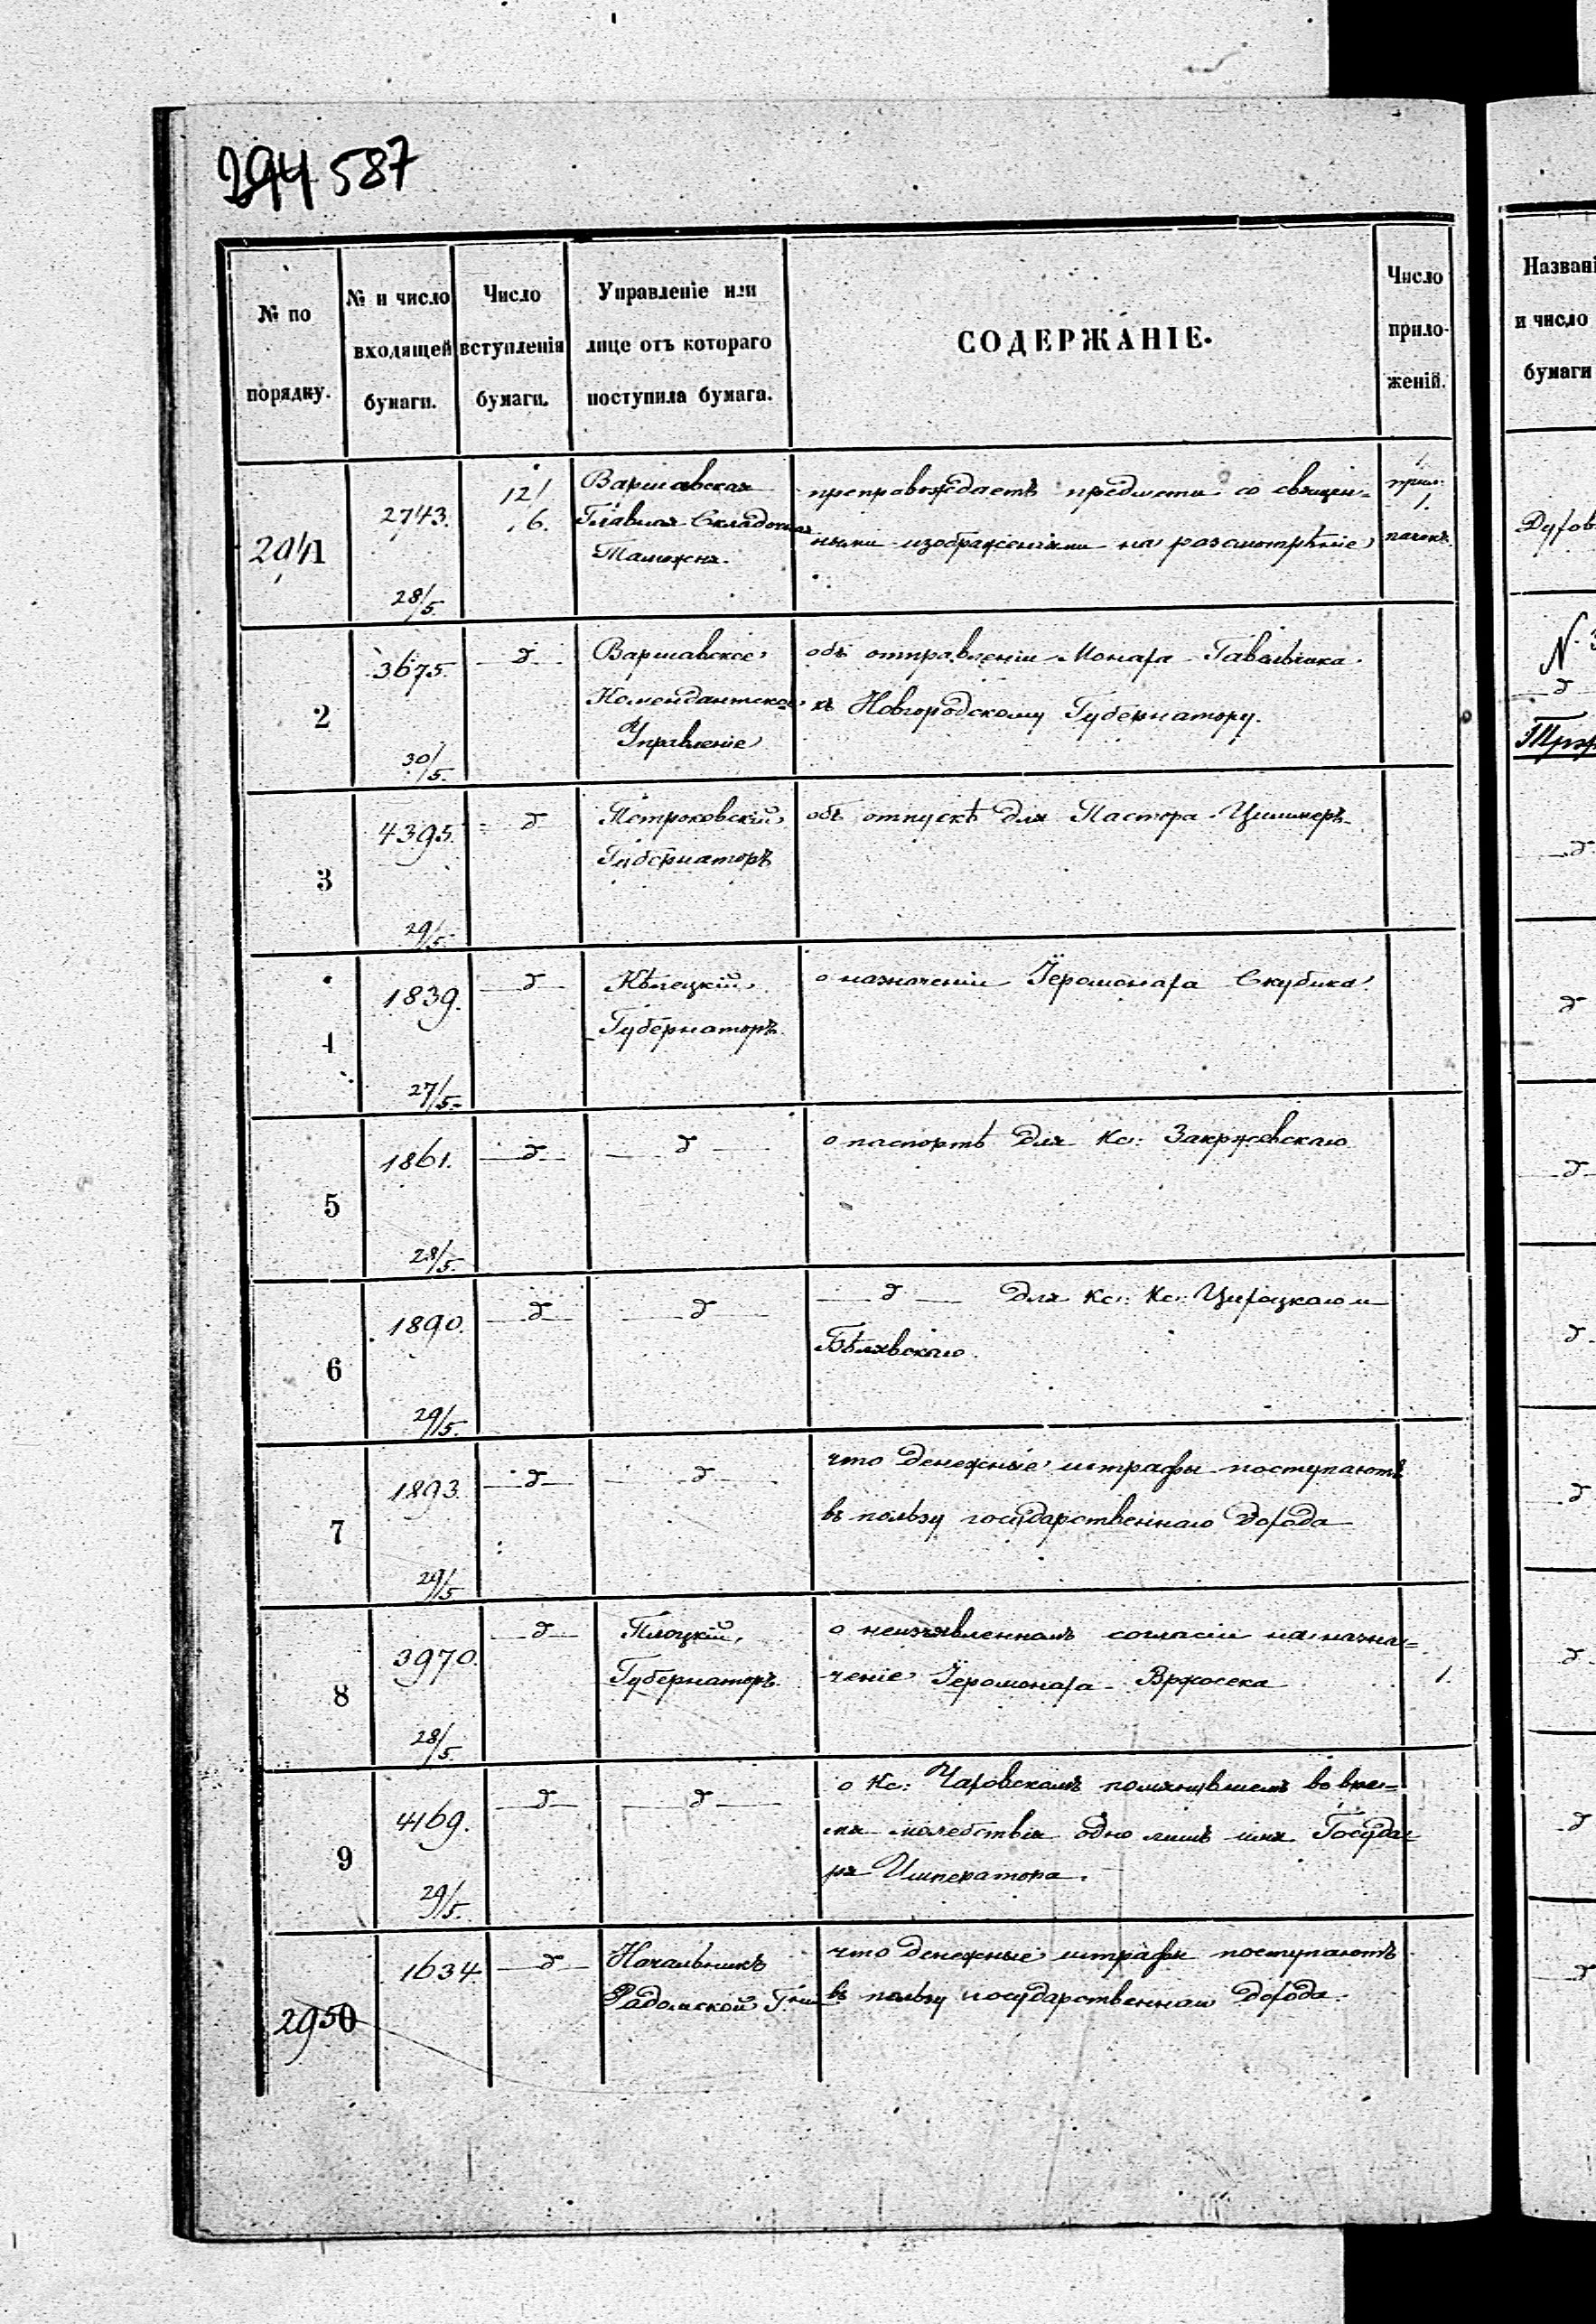 294 587
№ по порядку.
№ и число входящей бумаги.
Число вступленія бумаги.
Управленіе или лице отъ котораго поступила бумага.
СОДЕРЖАНІЕ.
Число приложеній.
2941 2743. 28/5. 12/6. Варшавская Главная Складочная Таможня.
препровождаетъ предметы со священ=
ными изображеніями на разсмотрѣніе
1.
2 3675. 30/5. д Варшавское Комендантское Управленіе
объ отправленіи Монаха
къ Новгородскому Губернатору.
3 4395. 29/5. д Петроковскій Губернаторъ
объ отпускѣ для Пастора Циммеръ
4 1839. 27/5. д Кѣлецкій Губернаторъ
о назначеніи Іеромонаха Скубика
5 1861. 28/5. д д
о паспортѣ для Кс: Закржевскаго
6 1890. 29/5. д д
д для Кс: Кс: Цихоцкаго и
Бѣлявскаго.
7 1893. 29/5 д д
что денежные штрафы поступаютъ
въ пользу государственнаго дохода
8 3970. 28/5. д Плоцкій Губернаторъ.
о неизъявленномъ согласіи на назна=
ченіе Іеромонаха Вржосека
1.
9 4169. 29/5. д д
о Кс: Чаровскомъ помянувшемъ во вре=
мя молебствія одно лишь имя Госуда=
ря Императора.
2950 1634 д Начальникъ Радомской Г-ніи
что денежные штрафы поступаютъ
въ пользу государственнаго дохода.
Назван
и число
бумаги
Духов
N. 3
д
д
д
д
д
д
д
д
д